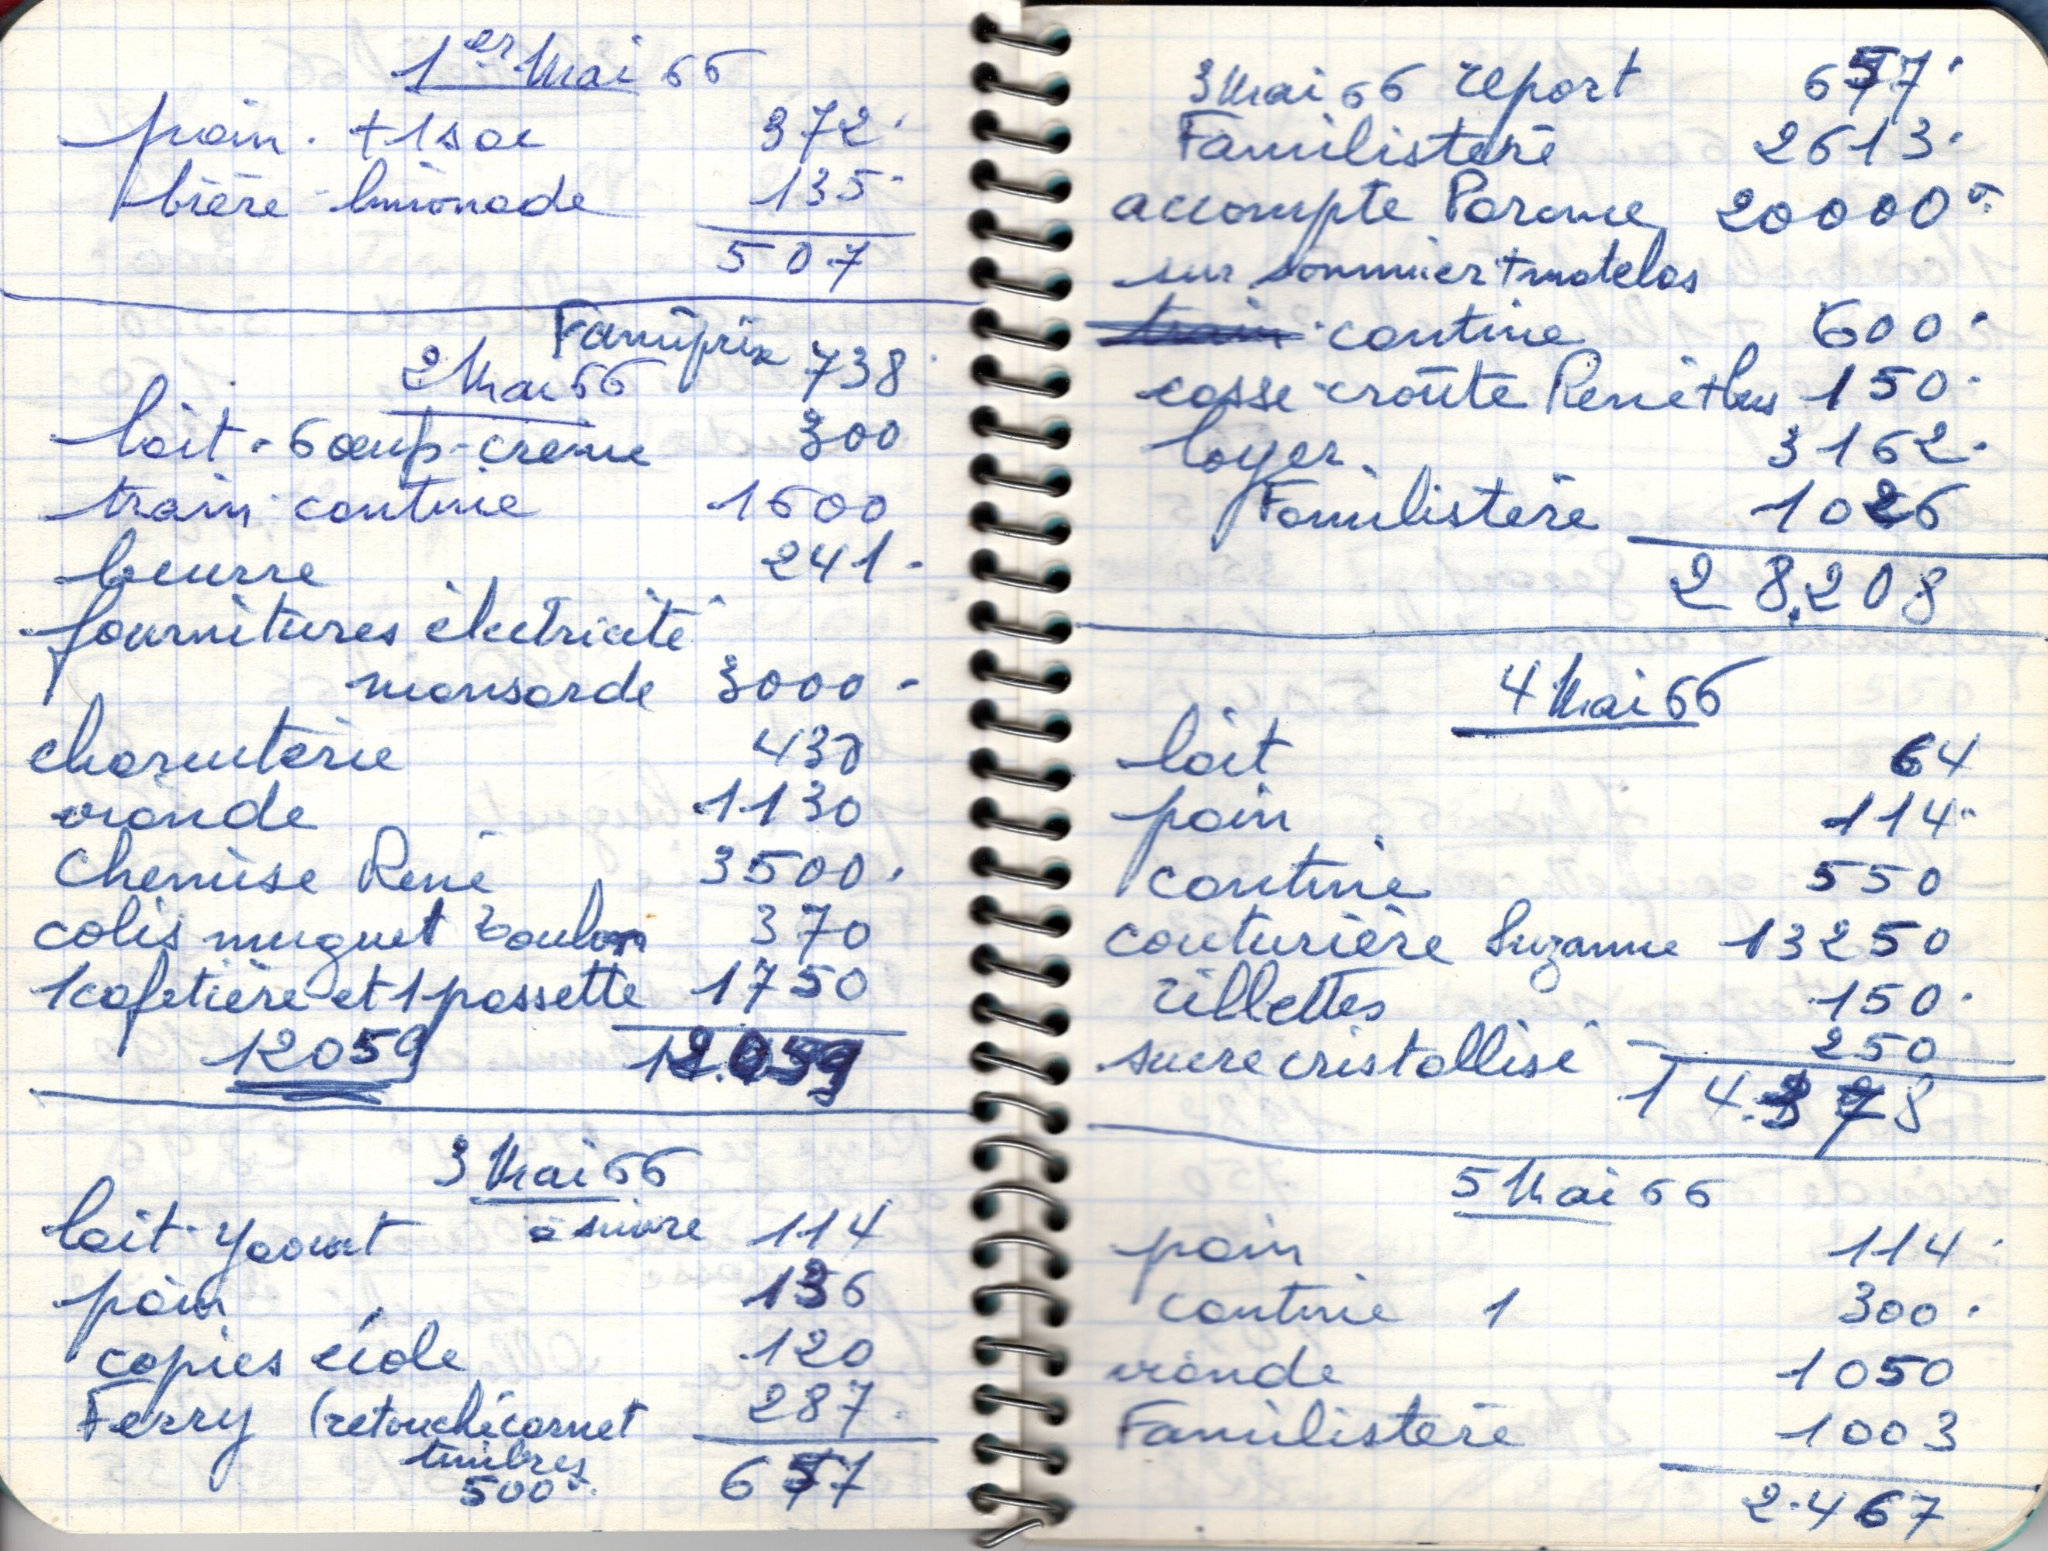 1er Mai 66
pain. + 1 sac 372.
bière - limonade 135.
507
Familprix 738.
2 Mai 66
lait - 6 œufs - crème 300
train - cantine 1600
beurre 241.
fournitures électricité
mansarde 3000.
charcuterie 430
viande 1130
chemise René 3500.
colis muguet Toulon 370
1 cafetière et 1 passette 1750
12059 12.059
3 Mai 66
à suivre
lait - yaourt 114
pain 136
copies école 120
Ferry (retouché carnet 287.
timbres
500. 657
3 Mai 66 report 657.
Familistère 2613.
accompte 20000.
sur sommier + matelas
train - cantine 600.
casse-croûte René + bus 150.
loyer. 3162.
Familistère 1026
28.208
4 Mai 66
lait 64
pain 114.
cantine 550
couturière Suzanne 13250
rillettes 150.
sucre cristallisé 250
14.378
5 Mai 66
pain 114.
cantine 1 300.
viande 1050
Familistère 1003
2.467